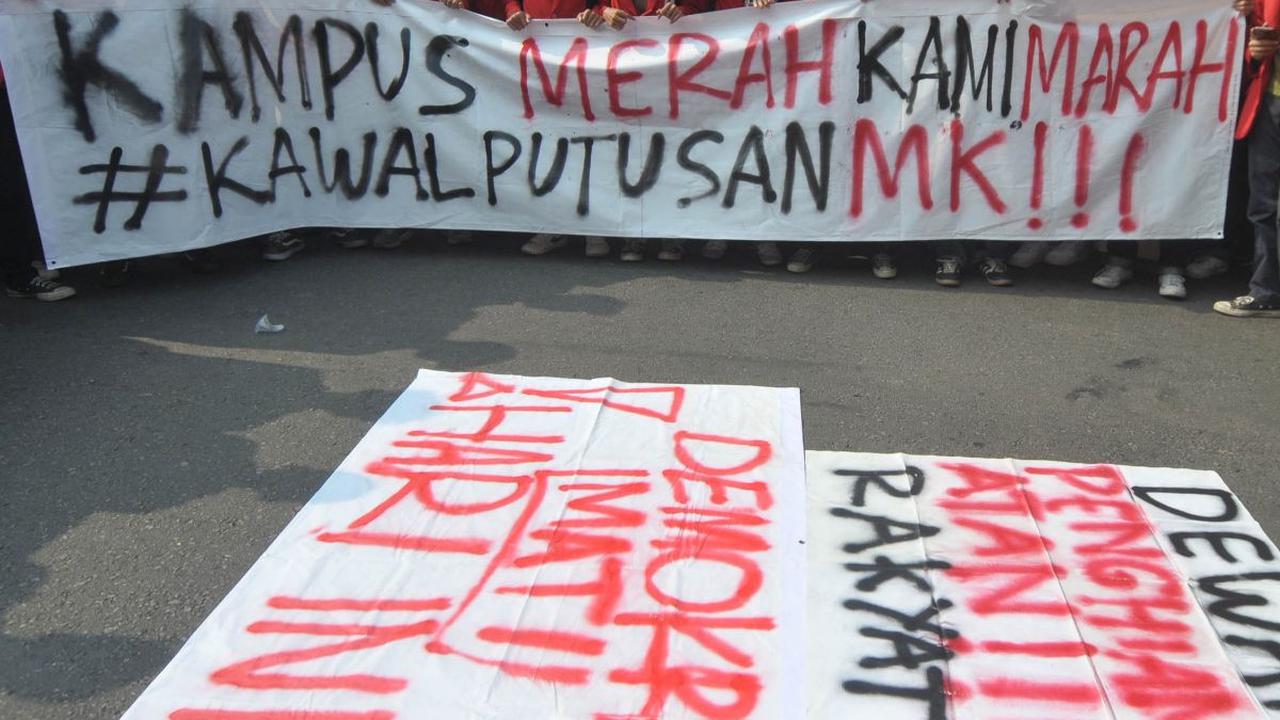 KAMPUS MERAH KAMI MARAH
#KAWALPUTUSAN MK!!!
DEMOKR
MATI!!
HARI INI
DEWA
PENGHIAN
ATAN!!
RAKYAT